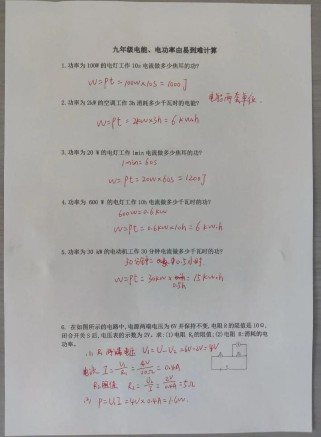 九年级电能、电功率由易到难计算
1.功率为100W的电灯工作10s电流做多少焦耳的功?
W=Pt=100W×10s=1000J
2.功率为2kW的空调工作3h消耗多少千瓦时的电能?
电能两套单位.
W=Pt=2kW×3h=6kW·h
3.功率为20 W的电灯工作1min电流做多少焦耳的功?
1min=60s
W=Pt=20W×60s=1200J
4.功率为 600 W 的电灯工作10h电流做多少千瓦时的功?
600W=0.6kW
W=Pt=0.6kW×10h=6kW·h
5.功率为30 kW的电动机工作30分钟电流做多少千瓦时的功?
30分钟=0.5小时.
W=Pt=30kW×0.5h=15kW·h
6. 在如图所示的电路中,电源两端电压为6V并保持不变,电阻R的阻值是10Ω,
闭合开关S后,电压表的示数为2V。求:(1)电阻R₂的阻值;(2)电阻R₁消耗的电
功率。
R₁两端电压 U₁=U-U₂=6V-2V=4V
电流 I=U₁/R₁=4V/10Ω=0.4A
R₂阻值 R₂=U₂/I=2V/0.4A=5Ω
P=U₁I=4V×0.4A=1.6W.